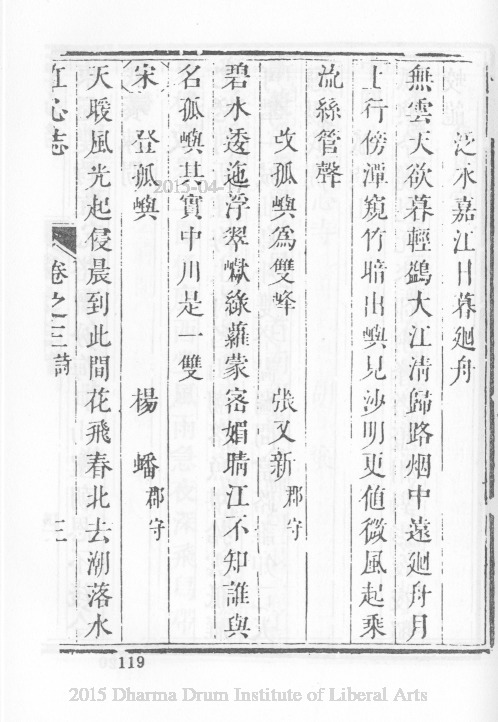 泛水嘉江日暮廻舟
無雲天欲暮輕鷁大江清歸路烟中遠廻舟月
上行傍潭窺竹暗出嶼見沙明更値微風起乘
流絲管聲
改孤嶼為雙峰 張又新 郡守
碧水逶迤浮翠巘綠蘿蒙密媚晴江不知誰與
名孤嶼其實中川是一雙
宋 登孤嶼 楊蟠 郡守
天暖風光起侵晨到此間花飛春北去潮落水
江心志 卷之三 詩 三
119
2015-04-1
2015 Dharma Drum Institute of Liberal Arts